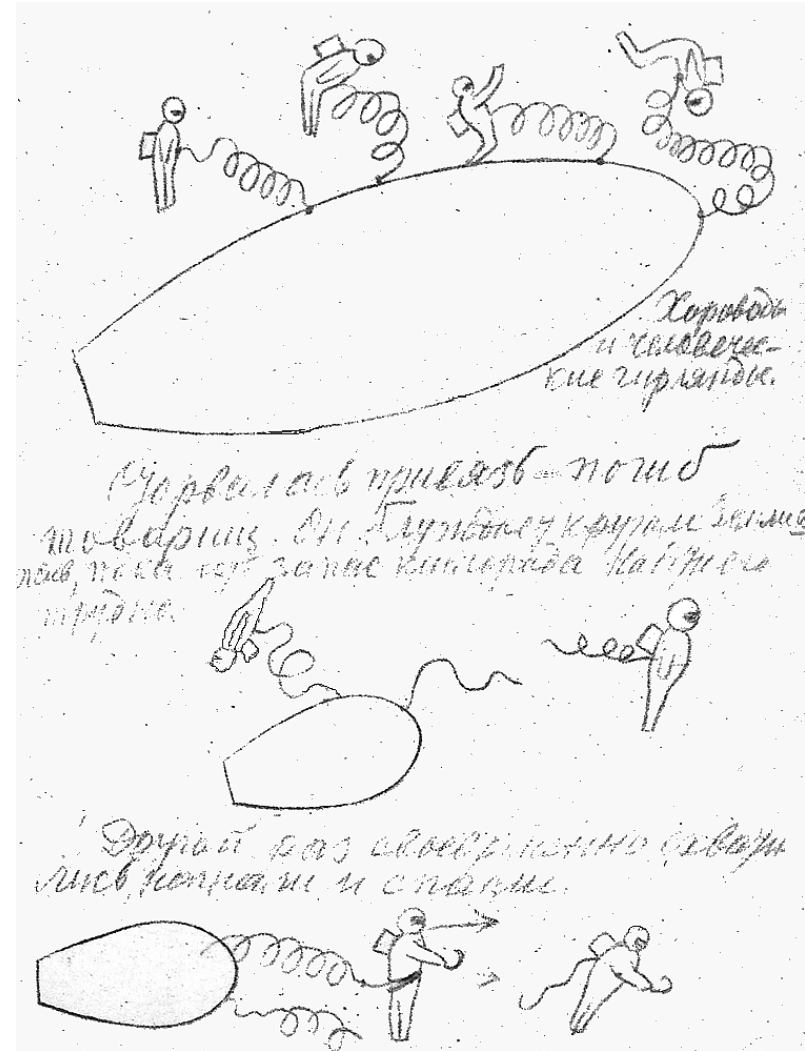 Хороводы
и человечес-
кие гирлянды.
Оорвалась привязь – погиб
товарищ. Он блуждает кругом Земли
пока запас кислорода
трудно.
Другой раз своевременно схвати
лись, догнали и спасли.